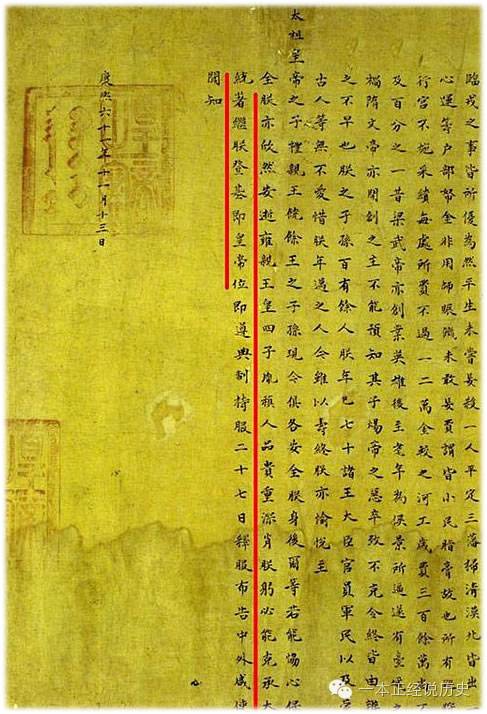 臨戎之事皆所優為然平生未嘗妄殺一人平定三藩掃清漠北皆出
心運籌戶部帑金非用師賑饑未敢妄費謂皆小民脂膏故也所有
行宮不施采繢每處所費不過一二萬金較之河工歲費三百餘萬尚
及百分之一昔梁武帝亦創業英雄後至耄年為侯景所逼遂有臺城
禍隋文帝亦開創之主不能預知其子煬帝之惡卒致不克令終皆由
之不早也朕之子孫百有餘人朕年已七十諸王大臣官員軍民以及
古人等無不愛惜朕年邁之人今雖以壽終朕亦愉悅至
太祖皇帝之子禮親王饒餘王之子孫現今俱各安全朕身後爾等若能協心保
全朕亦欣然安逝雍親王皇四子胤禛人品貴重深肖朕躬必能克承大
統著繼朕登基即皇帝位即遵典制持服二十七日釋服布告中外咸使
聞知
康熙六十一年十一月十三日
一本正经说历史